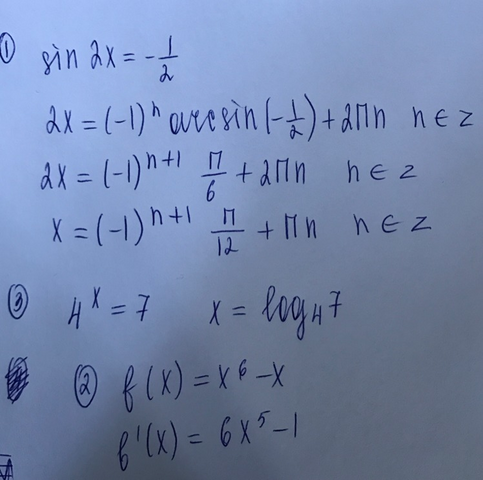 ① sin 2x = -1/2
2x = (-1)^n arcsin(-1/2) + 2πn n ∈ z
2x = (-1)^{n+1} π/6 + 2πn n ∈ z
x = (-1)^{n+1} π/12 + πn n ∈ z
③ 4^x = 7 x = log₄7
② f(x) = x⁶ - x
f'(x) = 6x⁵ - 1